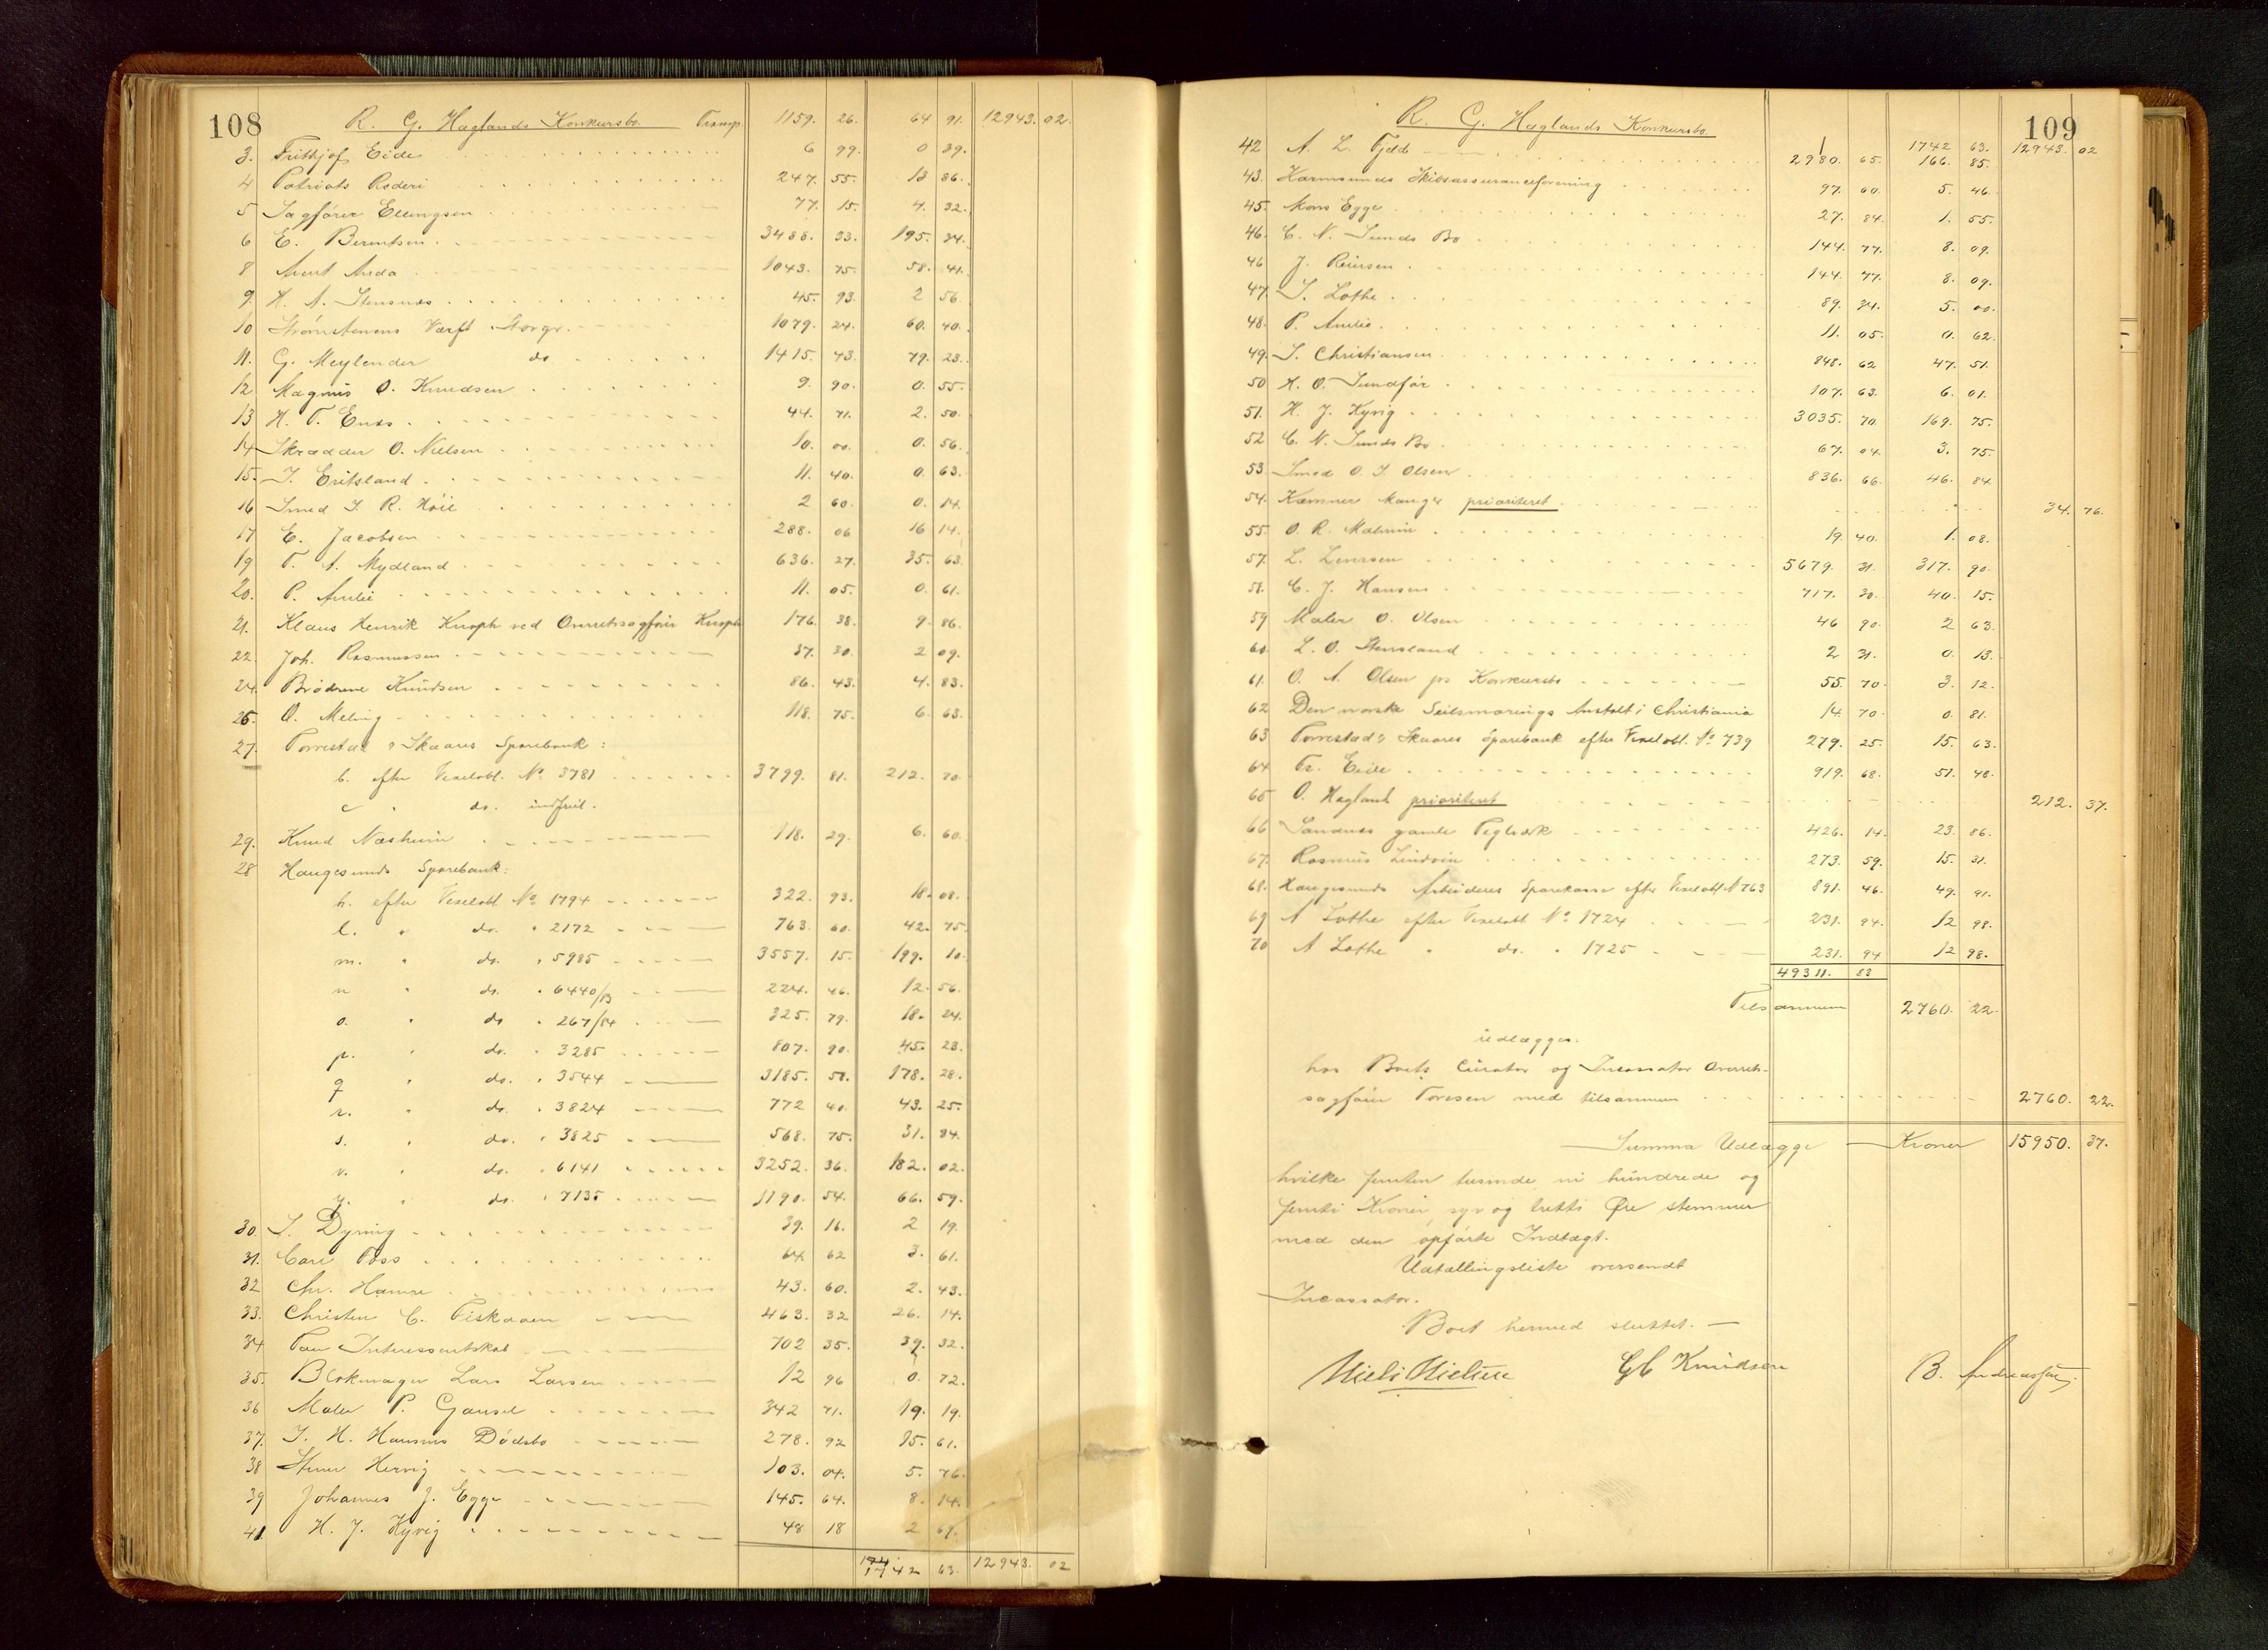 108
R. G. Haglands Konkursbo. Transp. 1159. 26. 64 91. 12943. 02.
3. Frithjof Eide 6 99. 0 39.
4 Patriots Rederi 247. 55. 13 86.
5 Sagfører Ellingsen 77. 15. 4. 32.
6 E. Berentsen 3488. 33. 195. 34.
8 Arent Anda 1043. 75. 58. 41.
9. H. A. Stensnes 45. 93. 2 56.
10 Strømstenens Værft Storgr. 1079. 24. 60. 40.
11. G. Meylender do 1415. 43. 79. 23.
12 Magnus O. Knudsen 9. 90. 0. 55.
13 H. T. Enæs 44. 71. 2. 50.
14 Skrædder O. Nielsen 10. 00. 0. 56.
15. I. Eritsland 11. 40. 0. 63.
16 Smed I. R. Høie 2 60. 0. 14.
17 E. Jacobsen 288. 06 16 14.
19 T. A. Mydland 636. 27. 35. 63.
20. P. Amlie 11. 05. 0. 61.
21. Klaus Henrik Knoph ved Overretssagfører Knoph 176. 38. 9. 86.
22. Joh. Rasmussen 37. 30. 2 09.
24. Brødrene Knudsen 86. 43. 4. 83.
26. O. Meling 118. 75. 6. 63.
27. Torvestad & Skaares Sparebank:
b. efter Vexelobl. No 3781 3799. 81. 212. 70.
c " do. indfriet.
29. Knud Næsheim 118. 29. 6. 60.
28 Haugesunds Sparebank:
h. efter Vexelobl No 1794 322. 93. 18. 08.
l. " do. " 2172 763. 60. 42. 75.
m. " do. " 5985 3557. 15. 199. 10.
n " do. " 6440/83 224. 46. 12. 56.
o. " do " 267/84 325. 79. 18. 24.
p. " do. " 3285 807. 90. 45. 23.
q " do. " 3544 3185. 51. 178. 28.
r. " do. " 3824 772 40. 43. 25.
s. " do. " 3825 568. 75. 31. 84.
v. " do. " 6141 3252. 36. 182. 02.
y. " do. " 7135 1190. 54. 66. 59.
30. S. Dyring 39. 16. 2 19.
31. Carl Foss 64 62 3. 61.
32 Chr. Hamre 43. 60. 2. 43.
33. Christen C. Fiskaaen 463. 32 26. 14.
34 Tau Interessentskab 702 35. 39. 32.
35. Blokmager Lars Larsen 12 96 0. 72.
36 Maler P. Gausel 342 71. 19. 19.
37. I. H. Hansens Dødsbo 278. 92 15. 61.
38 Stener Hervig 103. 04. 5. 76.
39 Johannes J. Egge 145. 64. 8. 14.
41. H. J. Kyvig 48 18 2 69.
1742 63. 12943. 02
109
R. G. Haglands Konkursbo
1742 63. 12943. 02
42 A. L. Fjeld 2980. 65. 166. 85.
43. Karmsunds Skibsassuranceforening 97. 60. 5. 46.
45. Mons Egge 27. 84. 1. 55.
46. C. N. Sunds Bo 144. 77. 8. 09.
46 J. Reiersen 144. 77. 8. 09.
47. S. Lothe 89. 34. 5. 00.
48. P. Amlie 11. 05. 0. 62.
49. S. Christiansen 848. 62 47. 51.
50 H. O. Sundfør 107. 63. 6. 01.
51. H. J. Kyvig 3035. 70. 169. 75.
52 C. N. Sunds Bo 67. 04. 3. 75.
53 Smed O. I. Olsen 836. 66. 46. 84
54. Kæmner Manger prioriteret 34. 76.
55. O. R. Malmin 19. 40. 1. 08.
57. L. Zenrsen 5679. 31. 317. 90.
58. C. J. Hansen 717. 30. 40. 15.
59 Maler O. Olsen 46 90. 2 63.
60. L. O. Stensland 2 31. 0. 13.
61. O. A. Olsen pr Konkursbo 55. 70. 3. 12.
62 Den norske Seilsmørings Anstalt i Christiania 14. 70. 0. 81.
63 Torvestad & Skaares Sparebank efter Vexelobl. No 739 279. 25. 15. 63.
64 Fr. Eide 919. 68. 51. 48.
65 O. Hagland prioriteret 212. 37.
66 Sandnes gamle Teglværk 426. 14. 23. 86.
67. Rasmus Lindøen 273. 59. 15. 31.
68. Haugesunds Arbeideres Sparekasse efter Vexelobl No 763 891. 46. 49. 91.
69 A Lothe efter Vexelobl No 1724 231. 94. 12 98.
70 A Lothe " do. " 1725 231. 94 12 98.
49311. 83
Tilsammen 2760. 22.
udlægges.
hos Boets Curator og Incassator Overrets-
sagfører Toresen med tilsammen 2760. 22.
Summa Udlægge Kroner 15950. 37.
hvilke femten tusinde ni hundrede og
femti Kroner, syv og tretti Øre stemmer
med den opførte Indtægt.
Udtællingsliste oversendt
Incassator.
Boet hermed sluttet. —
Niels Nielsen GC Knudsen B. Andreassen